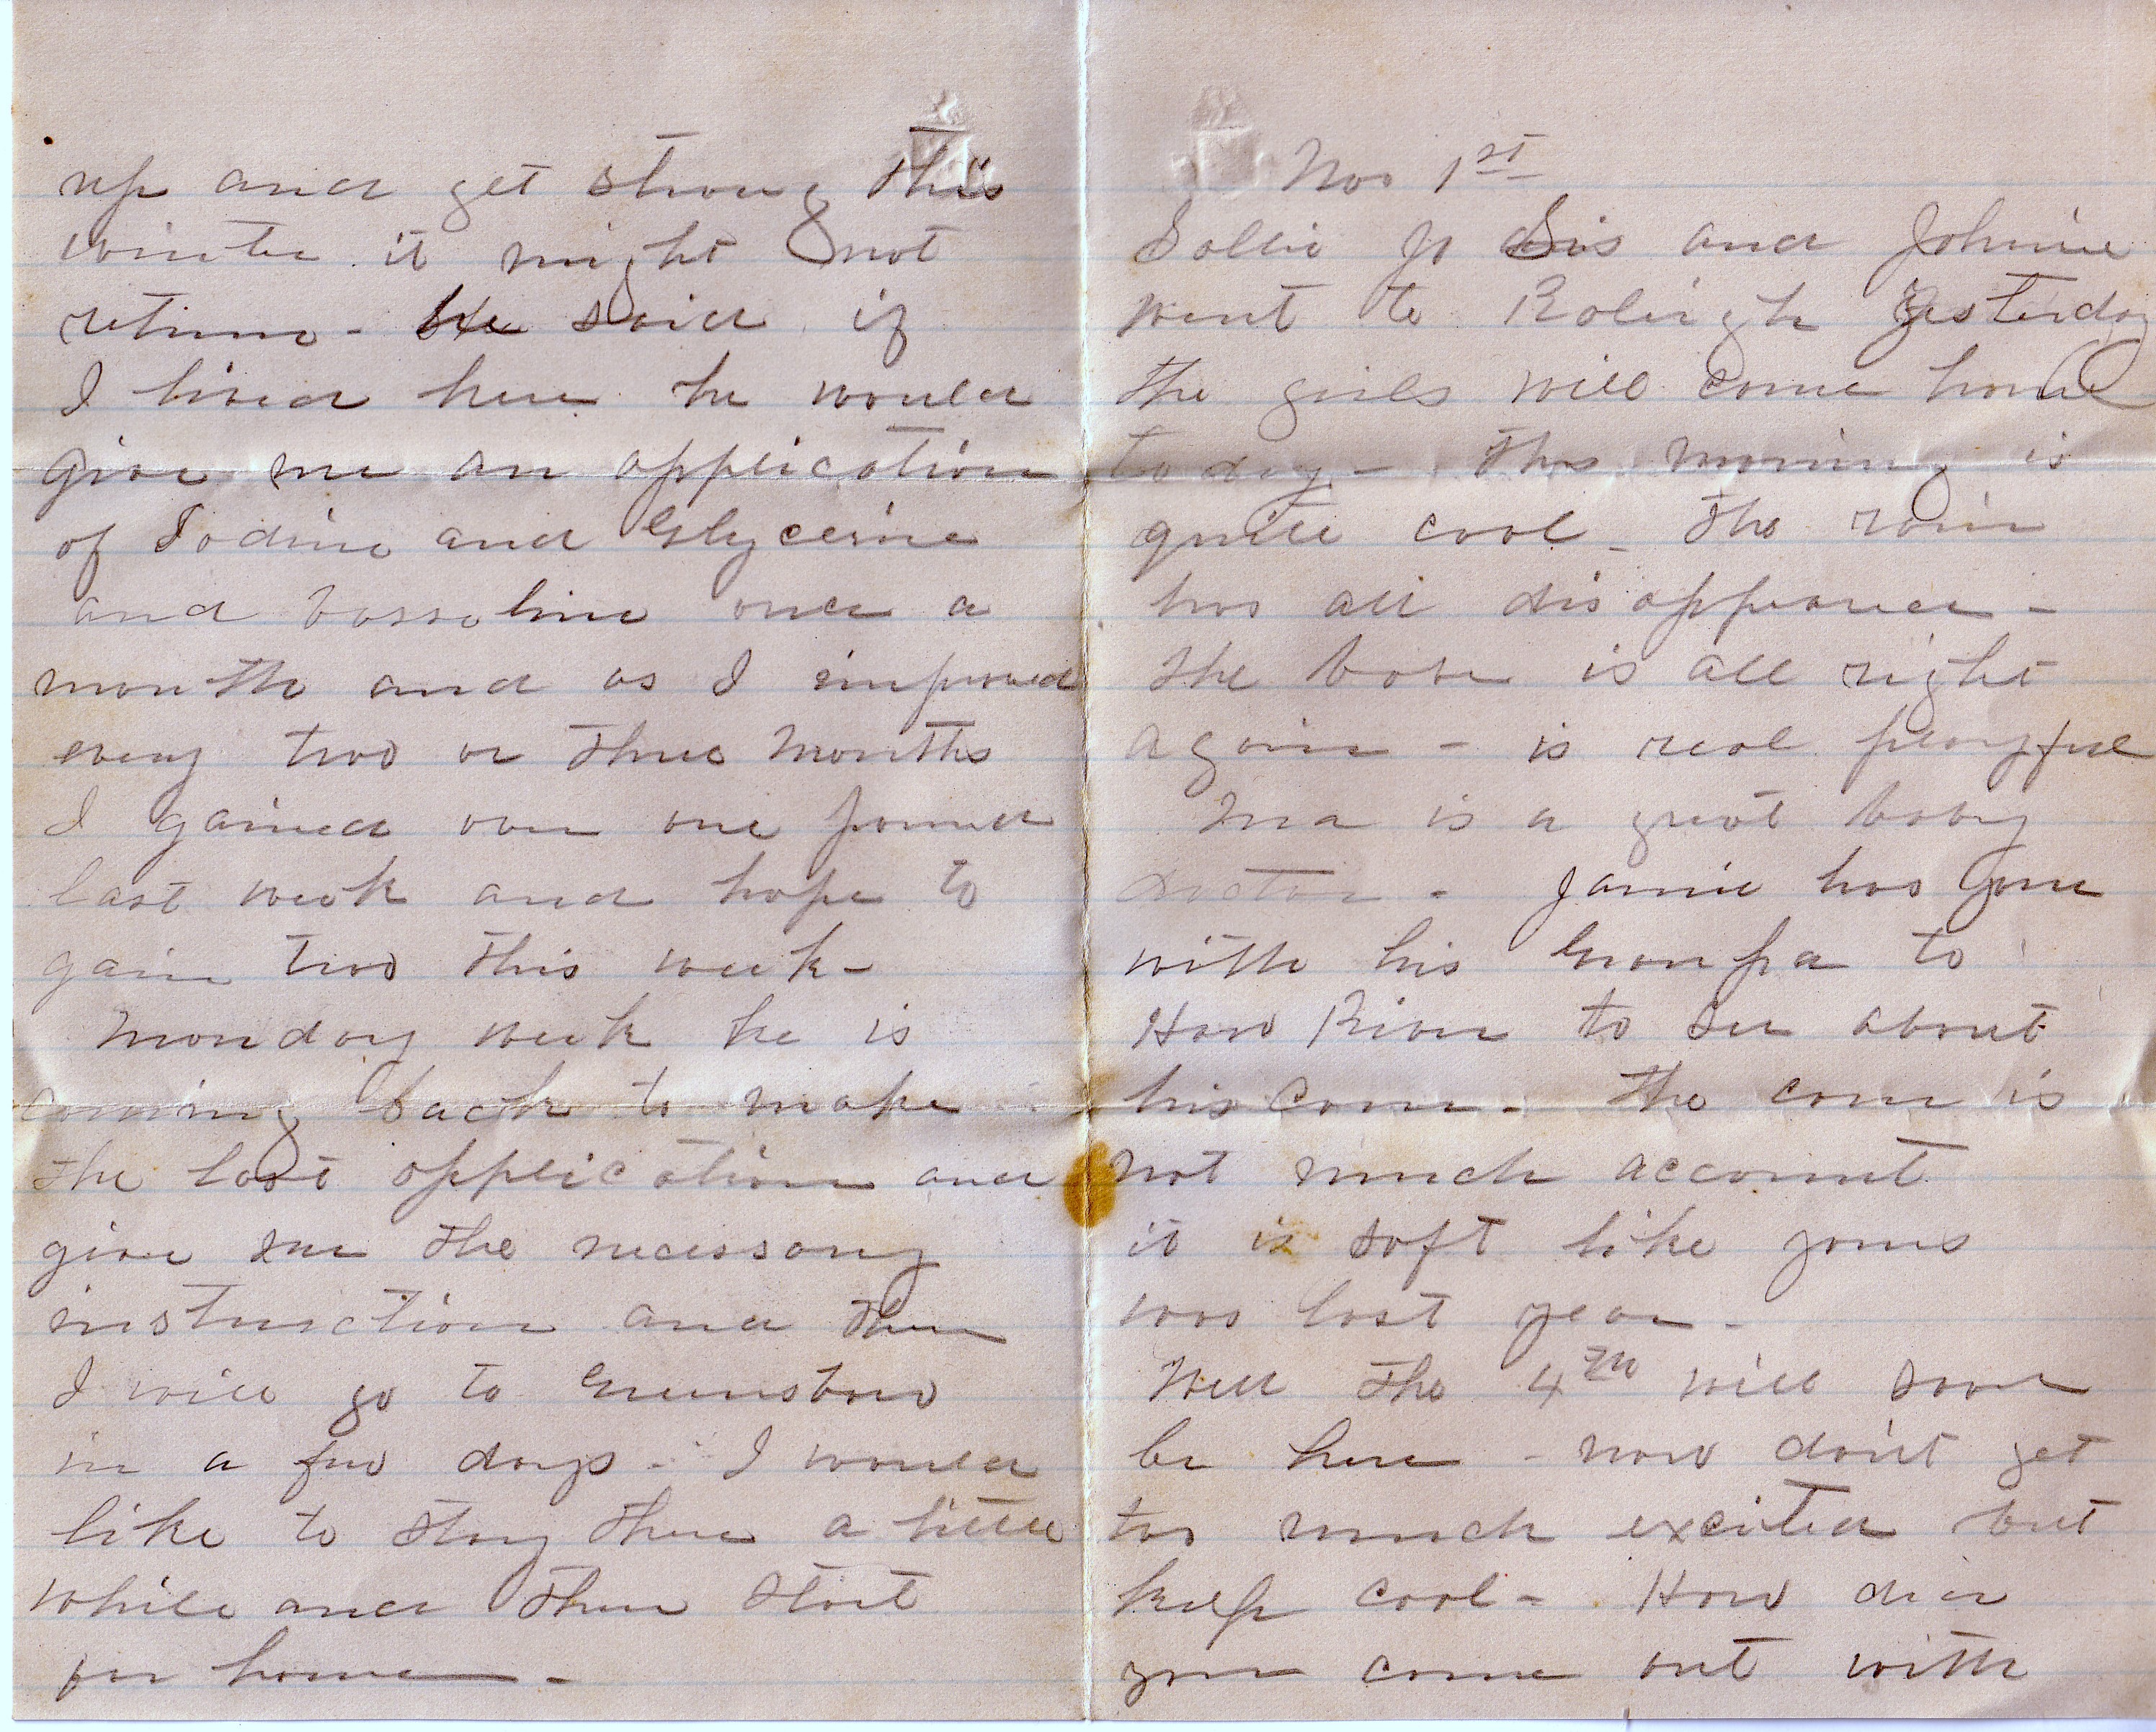 up and get strong this
winter it might not
return - He said if
I lived here he would
give me an application
of Iodine and Glycerine
and vasseline once a
month and as I improved
every two or three months
I gained over one pound
last week and hope to
gain two this week -
Monday week he is
coming back to make
the last application and
give me the necessary
instruction and then
I will go to Greensboro
in a few days - I would
like to stay there a little
while and then start
for home -
Nov 1st
Sallie Jo Sis and Johnie
went to Raleigh Yesterday
the girls will come home
today - This morning is
quite cool - The rain
has all disappeared -
The babe is all right
again - is real playful
Ma is a great baby
doctor - Jamie has gone
with his Granpa to
Haw River to see about
his corn - The corn is
not much account
it is soft like yours
was last year -
Well the 4th will soon
be here - now don't get
too much excited but
keep cool - How did
you come out with